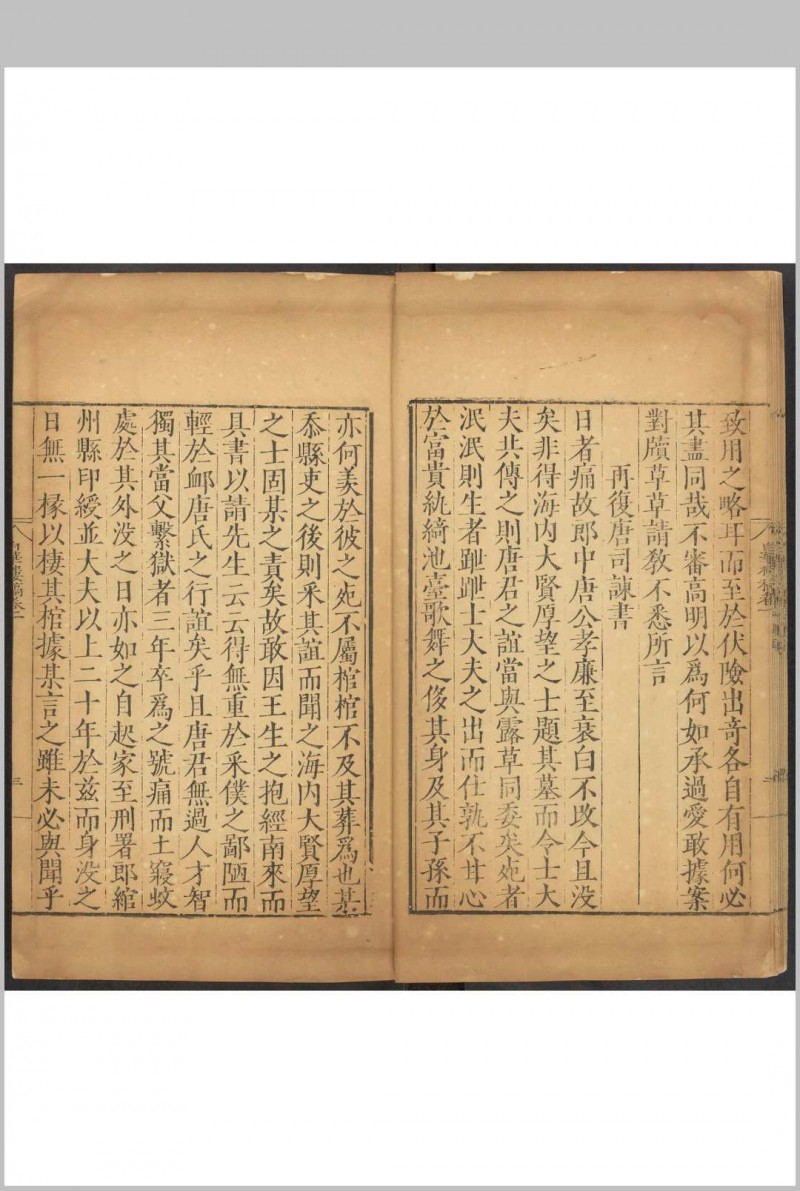 致用之略耳而至於伏險出竒各自有用何必
其盡同哉不審高明以爲何如承過愛敢據案
對牘草草請敎不悉所言
再復唐司諫書
日者痛故郎中唐公孝廉至衰白不攺今且没
矣非得海内大賢厚望之士題其墓而令士大
夫共傳之則唐君之誼當與露草同委矣死者
泯泯則生者跐跐士大夫之出而仕孰不甘心
於富貴紈綺池臺歌舞之侈其身及其子孫而
亦何羙於彼之死不屬棺棺不及其葬爲也某
忝縣吏之後則釆其誼而聞之海内大賢厚望
之士固某之責矣故敢因王生之抱經南來而
具書以請先生云云得無重於釆僕之鄙陋而
輕於䘏唐氏之行誼矣乎且唐君無過人才智
獨其當父繫獄者三年卒爲之號痛而土寢蚊
處於其外没之日亦如之自起家至刑署郎綰
州縣印綬並大夫以上二十年於兹而身没之
日無一椽以棲其棺據某言之雖未必與聞乎
華樓稿卷一
三